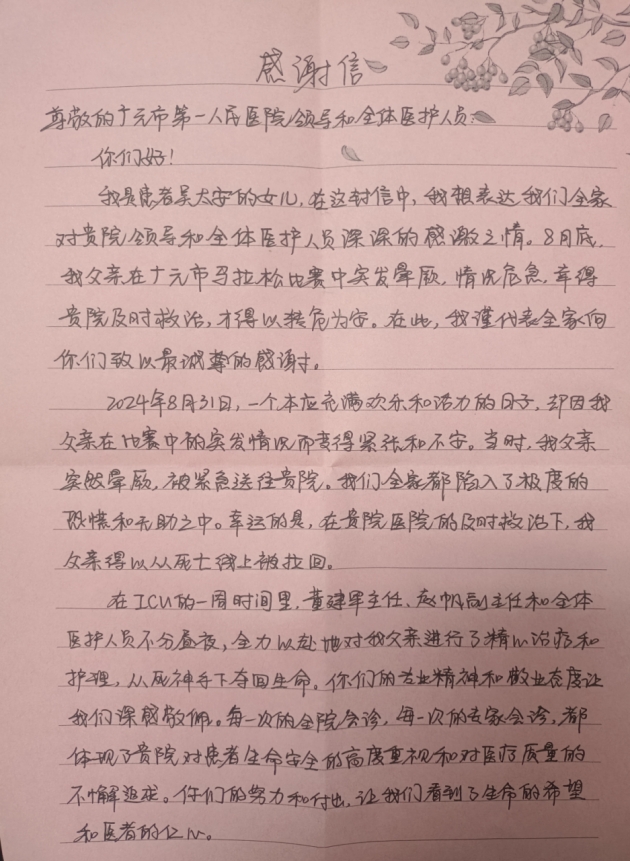 感谢信
尊敬的十元市第一人民医院领导和全体医护人员：
你们好！
我是患者吴太安的女儿，在这封信中，我想表达我们全家
对贵院领导和全体医护人员深深的感激之情。8月底，
我父亲在十元市马拉松比赛中突发晕厥，情况危急，幸得
贵院及时救治，才得以转危为安。在此，我谨代表全家向
你们致以最诚挚的感谢。
2024年8月31日，一个本应充满欢乐和活力的日子，却因我
父亲在比赛中的突发情况而变得紧张和不安。当时，我父亲
突然晕厥，被紧急送往贵院。我们全家都陷入了极度的
恐慌和无助之中。幸运的是，在贵院医院的及时救治下，我
父亲得以从死亡线上被拉回。
在ICU的一周时间里，黄建军主任、赵帆副主任和全体
医护人员不分昼夜，全力以赴地对我父亲进行了精心治疗和
护理，从死神手下夺回生命。你们的专业精神和敬业态度让
我们深感敬佩。每一次的全院会诊，每一次的专家会诊，都
体现了贵院对患者生命安全的高度重视和对医疗质量的
不懈追求。你们的努力和付出，让我们看到了生命的希望
和医者的仁心。